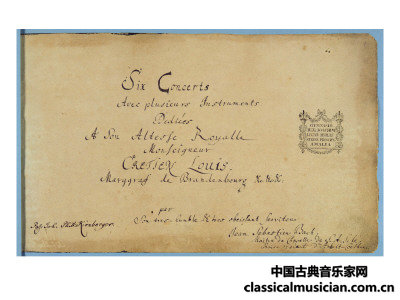 Six Concerts
Avec plusieurs Instruments
Dediées
A Son Altesse Royalle
Monseigneur
Cretien Louis.
Marggraf de Brandenbourg &c &c &c:
par
Son tres humble & tres obeissant serviteur
Jean Sebastien Bach,
Maitre de Chapelle de S. A. S. le
AMALIA
中国古典音乐家网
classicalmusician.com.cn